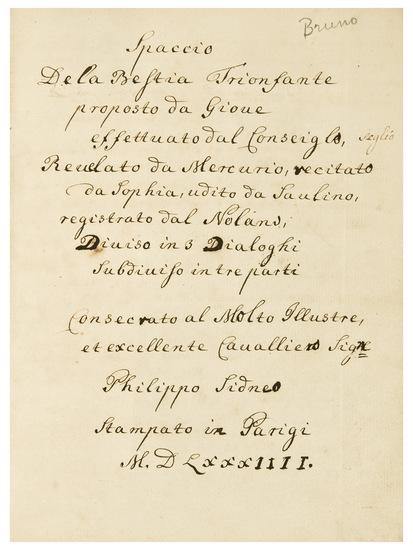 Bruno
Spaccio
De la Bestia Trionfante
proposto da Gioue
effettuato dal Conseiglo,
Reuelato da Mercurio, recitato
da Sophia, udito da Saulino,
registrato dal Nolano,
Diuiso in 3 Dialoghi
Subdiuiso in tre parti
Consecrato al Molto Illustre,
et excellente Caualliero Sigre
Philippo Sidneo
Stampato in Parigi
M. D LXXXIIII.